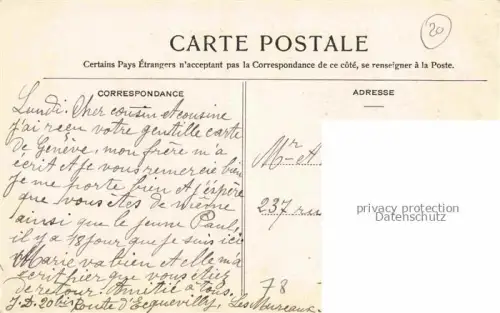 20
CARTE POSTALE
Certains Pays Étrangers n'acceptant pas la Correspondance de ce côté, se renseigner à la Poste.
CORRESPONDANCE
ADRESSE
Lundi. Cher cousin et cousine
j'ai reçu votre gentille carte
de Genève, mon frère m'a
écrit et je vous remercie bien
Je me porte bien et j'éspère
que vous êtes de même
ainsi que le jeune Paul
il y a 18 jour que je suis ici
Marie va bien et elle m'a
écrit hier que vous étiez
de retour. Amitié a tous.
J.D. 20 bis Route d'Ecquevilly, Les Mureaux
78
Mr A.
237 rue
privacy protection
Datenschutz